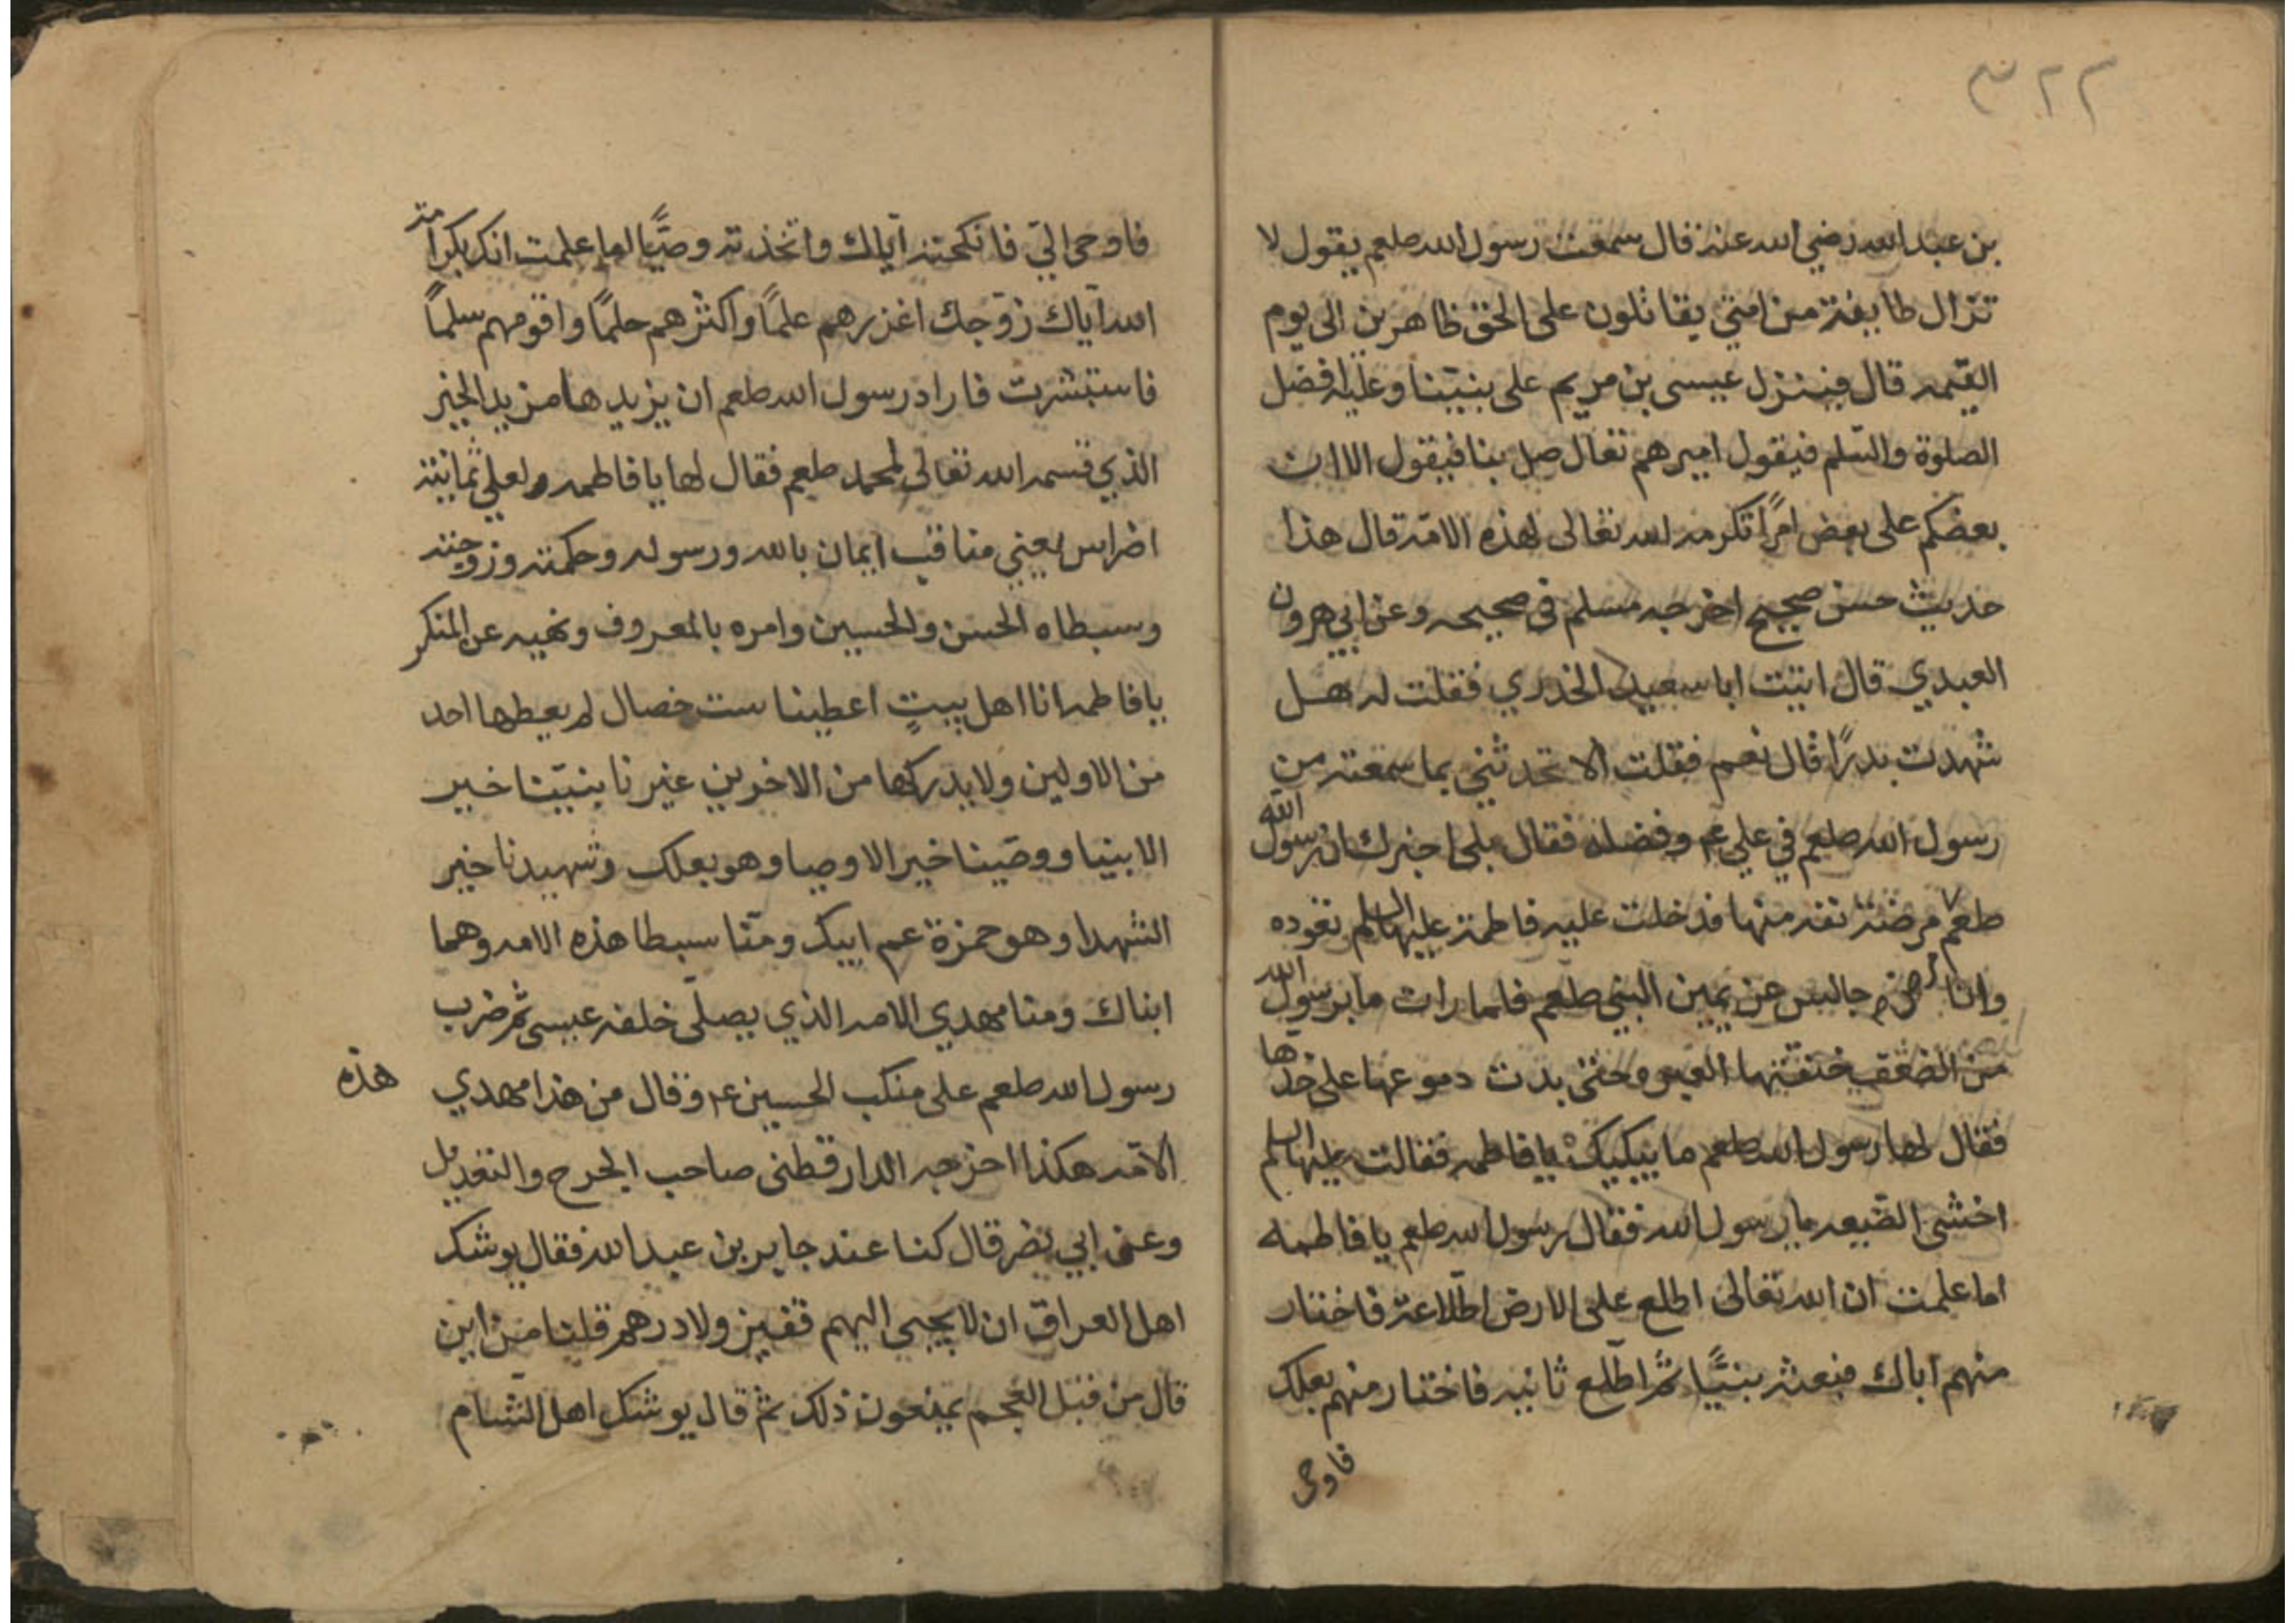 ٣٢٢
بن عبد الله رضي الله عنه قال سمعت رسول الله صلعم يقول لا
تزال طايفة من امتي يقاتلون على الحق ظاهرين الى يوم
القيمه قال فينزل عيسى بن مريم على نبيّنا وعليه افضل
الصلوة والسّلم فيقول اميرهم تعال صل بنا فيقول الا ان
بعضكم على بعض امرًا تكرمه الله تعالى لهذه الامّه قال هذا
حديث حسن صحيح اخرجه مسلم في صحيحه وعن ابي هرون
العبدي قال اتيت ابا سعيد الخدري فقلت له هل
شهدت بدرًا قال نعم فقلت الا تحدثني بما سمعته من
رسول الله صلعم في علي عم وفضله فقال بلى اخبرك ان رسول الله
صلعم مرض مرضة نقه منها فدخلت عليه فاطمة عليها السلم تعوده
وانا جالس عن يمين النبي صلعم فلما رات ما برسول الله
من الضعف خنقتها العبره حتى بدت دموعها على خدها
فقال لها رسول الله صلعم ما يبكيك يا فاطمه فقالت عليها السلم
اخشى الضّيعه يا رسول الله فقال رسول الله صلعم يا فاطمه
اما علمت ان الله تعالى اطلع على الارض اطّلاعة فاختار
منهم اباك فبعثه نبيًّا ثمّ اطّلع ثانيه فاختار منهم بعلك
فاوحى
فاوحى اليّ فانكحته ايّاك واتخذته وصيًّا اما علمت انك بكرامة
الله ايّاك زوّجك اغزرهم علمًا واكثرهم حلمًا واقومهم سلمًا
فاستبشرت فاراد رسول الله صلعم ان يزيدها مزيد الخير
الذي قسمه الله تعالى لمحمد صلعم فقال لها يا فاطمه ولعلي ثمانية
اضراس يعني مناقب ايمان بالله ورسوله وحكمته وزوجته
وسبطاه الحسن والحسين وامره بالمعروف ونهيه عن المنكر
يا فاطمه انا اهل بيتٍ اعطينا ست خصال لم يعطها احد
من الاولين ولا يدركها من الاخرين غيرنا نبيّنا خير
الانبيا ووصّينا خير الاوصيا وهو بعلك وشهيدنا خير
الشهدا وهو حمزة عم ابيك ومنّا سبطا هذه الامه وهما
ابناك ومنا مهدي الامه الذي يصلّي خلفه عيسى ثم ضرب
رسول الله صلعم على منكب الحسين عم وقال من هذا مهدي هذه
الامّه هكذا اخرجه الدارقطنى صاحب الجرح والتعديل
وعن ابي نضر قال كنا عند جابر بن عبد الله فقال يوشك
اهل العراق ان لا يجيى اليهم قفيز ولا درهم قلنا من اين
قال من قبل العجم يمنعون ذلك ثمّ قال يوشك اهل الشام